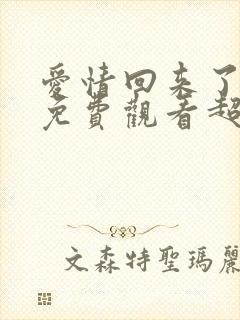 愛情回來了
免費觀看超
文森特聖瑪麗